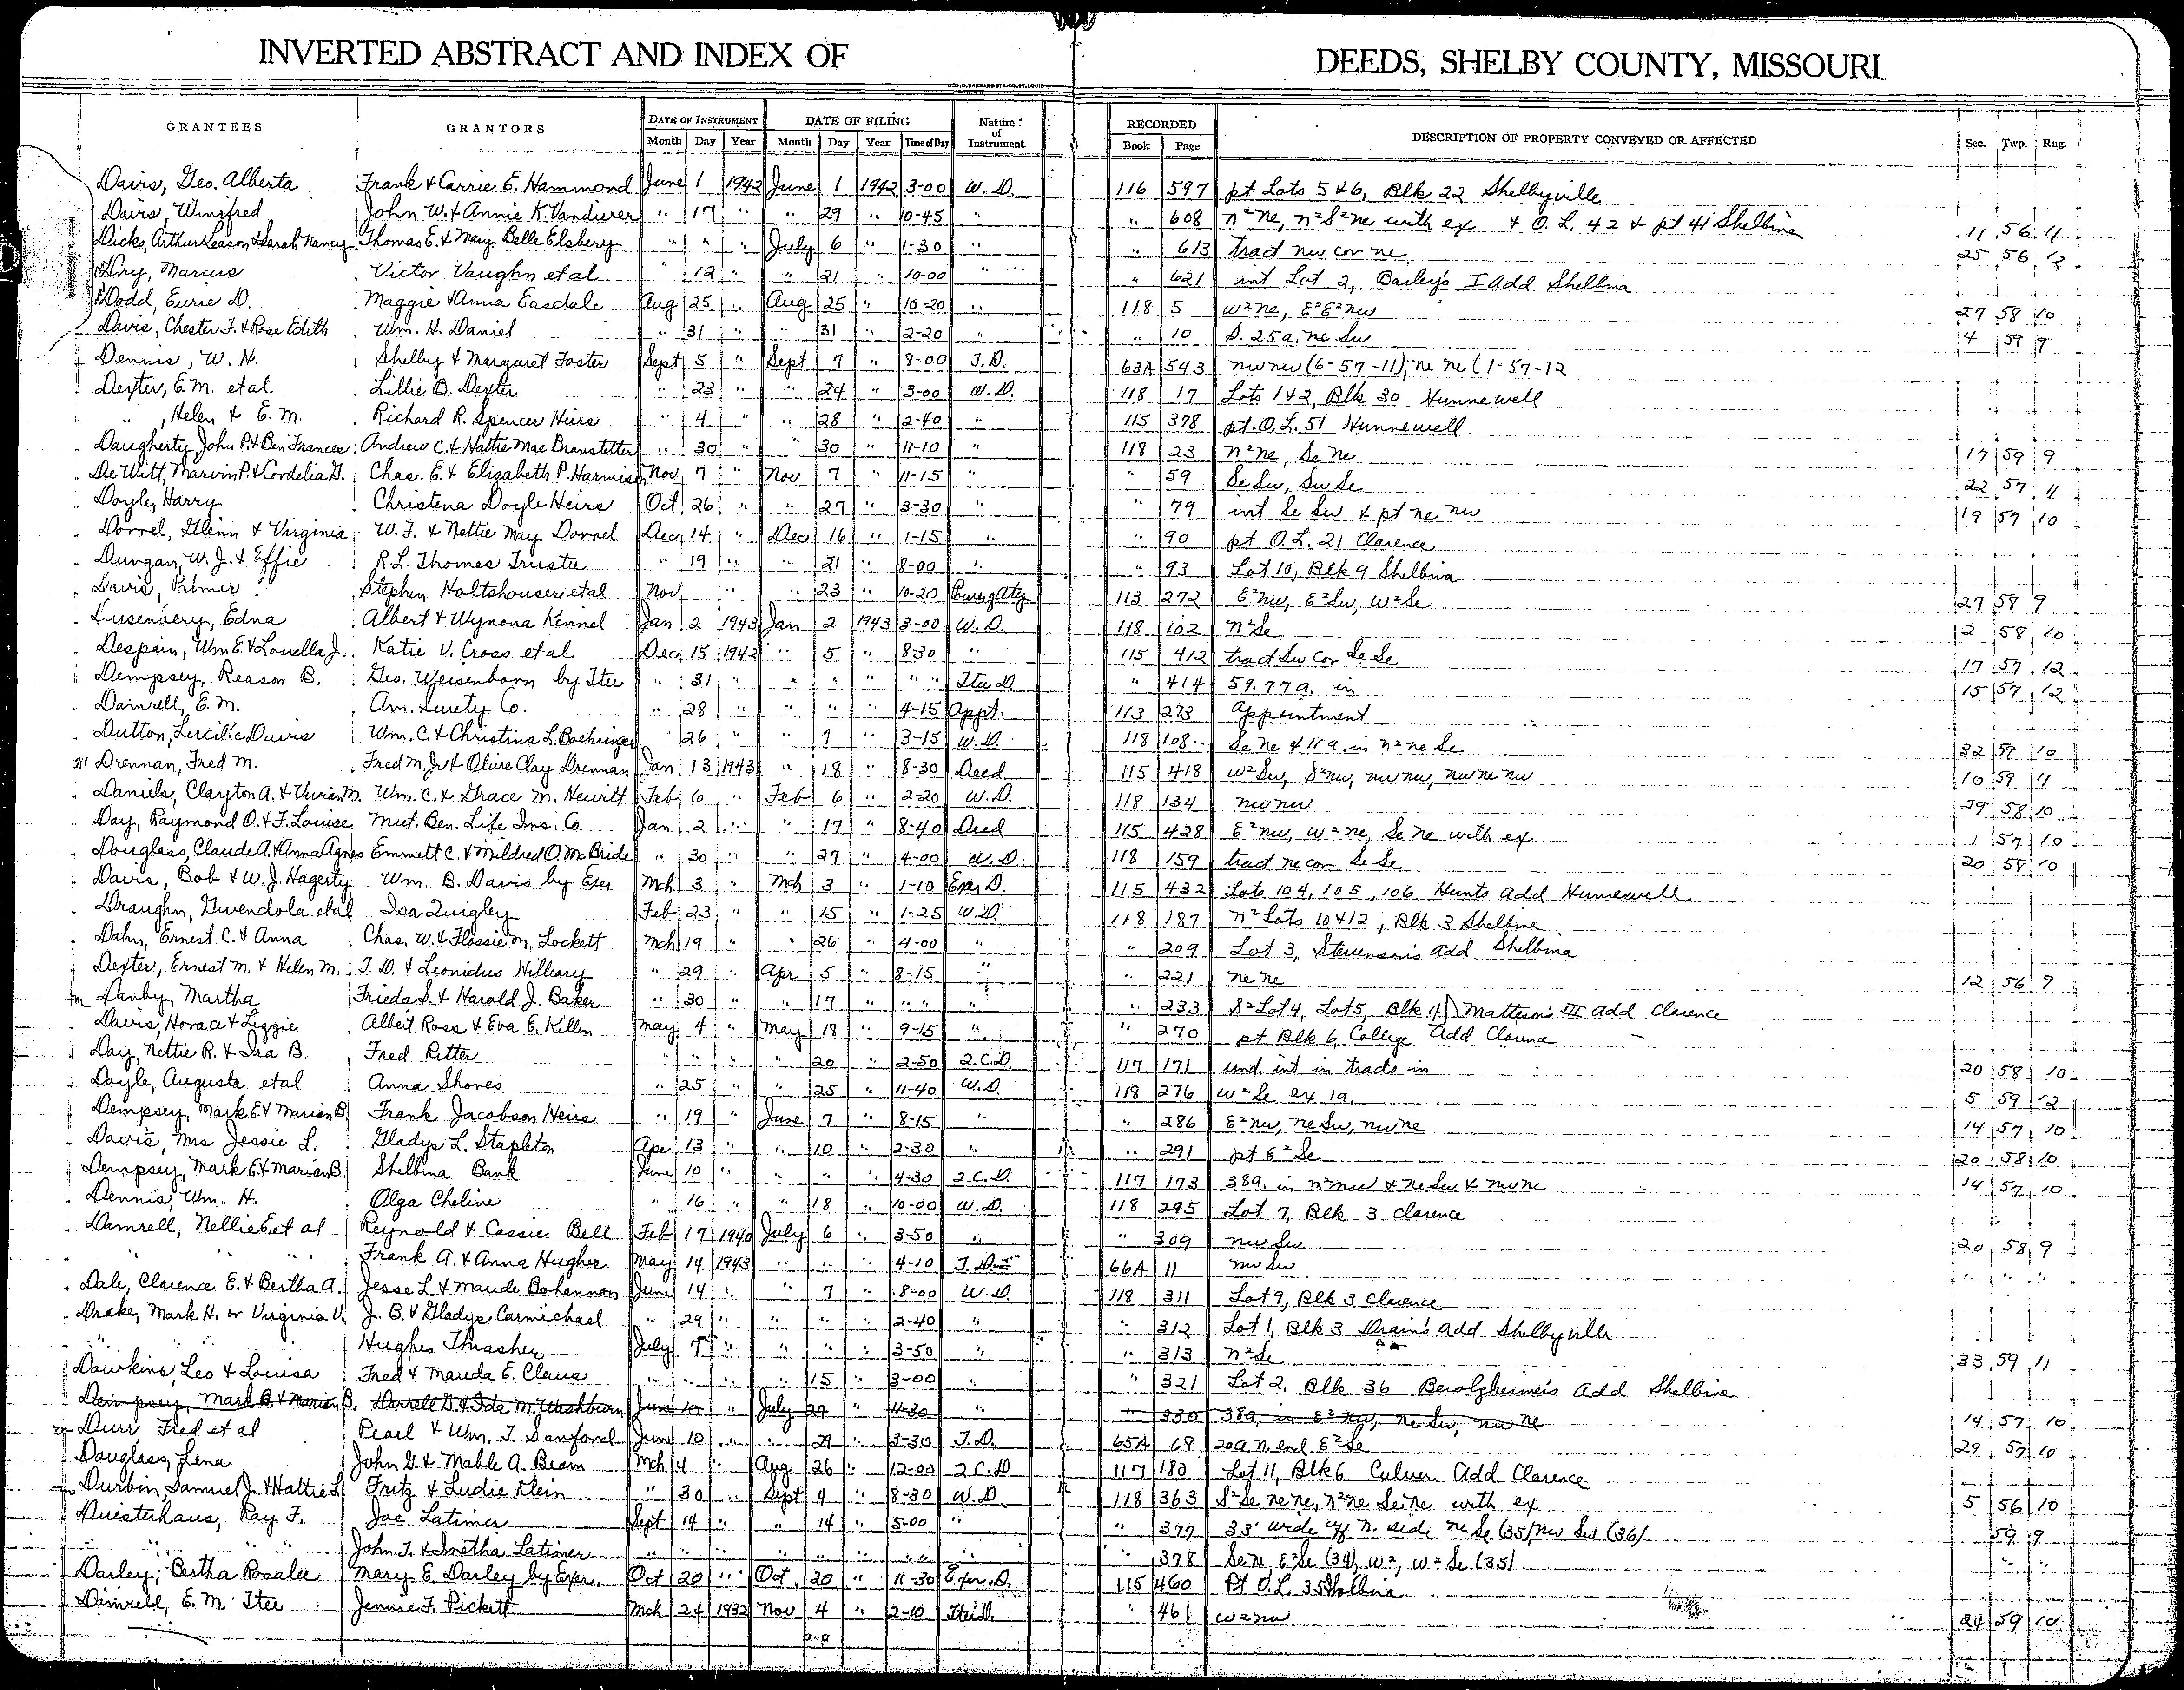 INVERTED ABSTRACT AND INDEX OF DEEDS, SHELBY COUNTY, MISSOURI
GEO. D. BARNARD STA. CO. ST. LOUIS
GRANTEES GRANTORS DATE OF INSTRUMENT DATE OF FILING Nature of Instrument RECORDED DESCRIPTION OF PROPERTY CONVEYED OR AFFECTED Sec. Twp. Rng.
Month Day Year Month Day Year Time of Day Book Page
Davis, Geo. Alberta Frank & Carrie E. Hammond June 1 1942 June 1 1942 3-00 W. D. 116 597 pt Lots 5 & 6, Blk 22 Shelbyville
Davis, Winifred John W. & Annie K. Vandiver " 17 " " 29 " 10-45 " " 608 n² ne, n² S² ne with ex & O. L. 42 & pt 41 Shelbina 11 56 11
Dicks, Arthur Leason & Sarah Nancy Thomas E. & Mary Belle Elsbery " " " July 6 " 1-30 " " 613 tract nw cor ne 25 56 12
Dry, Marcus Victor Vaughn et al " 12 " " 21 " 10-00 " " 621 int Lot 2, Bailey's I Add Shelbina
Dodd, Eurie D. Maggie & Anna Easdale Aug 25 " Aug 25 " 10-20 " 118 5 W² ne, E² E² nw 27 58 10
Davis, Chester F. & Rose Edith Wm. H. Daniel " 31 " " 31 " 2-20 " " 10 S. 25 a. ne Sw 4 59 9
Dennis, W. H. Shelby & Margaret Foster Sept 5 " Sept 7 " 8-00 T. D. 63A 543 nw nw (6-57-11); ne ne (1-57-12
Dexter, E. M. et al. Lillie B. Dexter " 23 " " 24 " 3-00 W. D. 118 17 Lots 1 & 2, Blk 30 Hunnewell
" , Helen & E. M. Richard R. Spencer Heirs " 4 " " 28 " 2-40 " 115 378 pt. O. L. 51 Hunnewell
Daugherty, John P. & Ben Frances Andrew C. & Hattie Mae Branstetter " 30 " " 30 " 11-10 " 118 23 n² ne, Se ne 17 59 9
De Witt, Marvin P. & Cordelia G. Chas. E. & Elizabeth P. Harmison Nov 7 " Nov 7 " 11-15 " " 59 Se Sw, Sw Se 22 57 11
Doyle, Harry Christena Doyle Heirs Oct 26 " " 27 " 3-30 " " 79 int Se Sw & pt ne nw 19 57 10
Dorrel, Glenn & Virginia W. F. & Nettie May Dorrel Dec 14 " Dec 16 " 1-15 " " 90 pt O. L. 21 Clarence
Dungan, W. J. & Effie R. L. Thomas Trustee " 19 " " 21 " 8-00 " " 93 Lot 10, Blk 9 Shelbina
Davis, Palmer Stephen Holtshouser et al Nov " " 23 " 10-20 113 272 E² nw, E² Sw, W² Se 27 58 9
Lusenbery, Edna Albert & Wynona Kennel Jan 2 1943 Jan 2 1943 3-00 W. D. 118 102 n² Se 2 58 10
Despain, Wm E. & Louella J. Katie V. Cross et al Dec 15 1942 " 5 " 8-30 " 115 412 tract Sw Cor Se Se 17 57 12
Dempsey, Reason B. Geo. Weisenborn by Ttee " 31 " " " " " " Ttee D. " 414 59.77 a. in 15 57 12
Damrell, E. M. Am. Surety Co. " 28 " " " " 4-15 Appt. 113 273 Appointment
Dutton, Lucille Davis Wm. C. & Christina L. Baehringer " 26 " " 7 " 3-15 W. D. 118 108 Se ne & 11 a. in n² ne Se 32 59 10
Drennan, Fred M. Fred M. Jr & Olive Clay Drennan Jan 13 1943 " 18 " 8-30 Deed 115 418 W² Sw, S² nw, nw nw, nw ne nw 10 59 11
Daniels, Clayton A. & Vivian M. Wm. C. & Grace M. Hewitt Feb 6 " Feb 6 " 2-20 W. D. 118 134 nw nw 29 58 10
Day, Raymond O. & F. Louise Mut. Ben. Life Ins. Co. Jan 2 " " 17 " 8-40 Deed 115 428 E² nw, W² ne, Se ne with ex 1 57 10
Douglass, Claude A. & Anna Agnes Emmett C. & Mildred O. McBride " 30 " " 27 " 4-00 W. D. 118 159 tract ne cor Se Se 20 58 10
Davis, Bob & W. J. Hagerty Wm. B. Davis by Exer Mch 3 " Mch 3 " 1-10 Exer D. 115 432 Lots 104, 105, 106 Hunts Add Hunnewell
Draughn, Gwendola et al Isa Quigley Feb 23 " " 15 " 1-25 W. D. 118 187 n² Lots 10 & 12, Blk 3 Shelbina
Dahn, Ernest C. & Anna Chas. W. & Flossie M. Lockett Mch 19 " " 26 " 4-00 " " 209 Lot 3, Stevenson's Add Shelbina
Dexter, Ernest M. & Helen M. T. D. & Leonidus Hilleary " 29 " Apr 5 " 8-15 " " 221 ne ne 12 56 9
Danby, Martha Frieda S. & Harold J. Baker " 30 " " 17 " " " " " 233 S² Lot 4, Lot 5, Blk 4 Matteson's III Add Clarence
Davis, Horace & Lizzie Albert Ross & Eva E. Killen May 4 " May 18 " 9-15 " " 270 pt Blk 6, College Add Clarence
Day, Nettie R. & Ira B. Fred Ritter " " " " 20 " 2-50 Q. C. D. 117 171 und. int in tracts in 20 58 10
Doyle, Augusta et al Anna Shores " 25 " " 25 " 11-40 W. D. 118 276 W² Se ex 1 a. 5 59 12
Dempsey, Mark E. & Marian B. Frank Jacobson Heirs " 19 " June 7 " 8-15 " " 286 E² nw, ne Sw, nw ne 14 57 10
Davis, Mrs Jessie L. Gladys L. Stapleton Apr 13 " " 10 " 2-30 " " 291 pt E² Se 20 58 10
Dempsey, Mark E. & Marian B. Shelbina Bank June 10 " " " " 4-30 Q. C. D. 117 173 38 a. in n² nw & ne Sw & nw ne 14 57 10
Dennis, Wm. H. Olga Cheline " 16 " " 18 " 10-00 W. D. 118 295 Lot 7, Blk 3 Clarence
Damrell, Nellie E. et al Reynold & Cassie Bell Feb 17 1940 July 6 " 3-50 " " 309 nw Sw 20 58 9
" " " Frank A. & Anna Hughes May 14 1943 " " " 4-10 T. D. 66A 11 nw Sw " " "
Dale, Clarence E. & Bertha A. Jesse L. & Maude Bohannon June 14 " " 7 " 8-00 W. D. 118 311 Lot 9, Blk 3 Clarence
Drake, Mark H. or Virginia V. J. B. & Gladys Carmichael " 29 " " " " 2-40 " " 312 Lot 1, Blk 3 Drain's Add Shelbyville
" " Hughes Thrasher July 7 " " " " 3-50 " " 313 n² Se 33 59 11
Dawkins, Leo & Louisa Fred & Mauda E. Claus " " " " 15 " 3-00 " " 321 Lot 2, Blk 36 Berolzheimer's Add Shelbina
Dempsey, Mark E. & Marian B. Darrell G. & Ida M. Washburn June 10 " July 29 " 11-30 " 330 38 a. in E² nw, ne Sw, nw ne 14 57 10
Durr Fred et al Pearl & Wm. T. Sanford June 10 " " 29 " 3-30 T. D. 65A 69 20 a. n. end E² Se 29 57 10
Douglass, Lena John G. & Mable A. Beam Mch 4 " Aug 26 " 12-00 Q. C. D 117 180 Lot 11, Blk 6 Culver Add Clarence
Durbin, Samuel J. & Hattie L. Fritz & Ludie Klein " 30 " Sept 4 " 8-30 W. D. 118 363 S² Se ne ne, n² ne Se ne with ex 5 56 10
Duesterhaus, Ray F. Joe Latimer Sept 14 " " 14 " 5-00 " " 377 33' wide off n. side ne Se (35) nw Sw (36) 59 9
" " " John T. & Inetha Latimer " " " " " " " " " " 378 Se ne E² Se (34), W², W² Se (35) " "
Darley, Bertha Rosalee Mary E. Darley by Exer. Oct 20 " Oct. 20 " 11-30 Exer. D. 115 460 Pt O. L. 35 Shelbina
Damrell, E. M. Ttee Jennie F. Pickett Mch 24 1932 Nov 4 " 2-10 Ttee D. " 461 W² nw 24 59 10